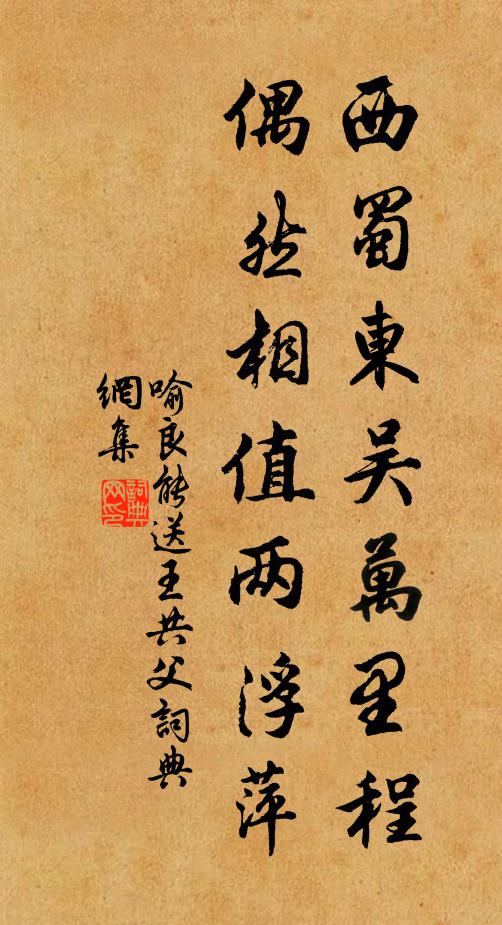 西蜀東吴萬里程
偶然相值两浮萍
喻良能送王共父詞典
網集
詞典
网印